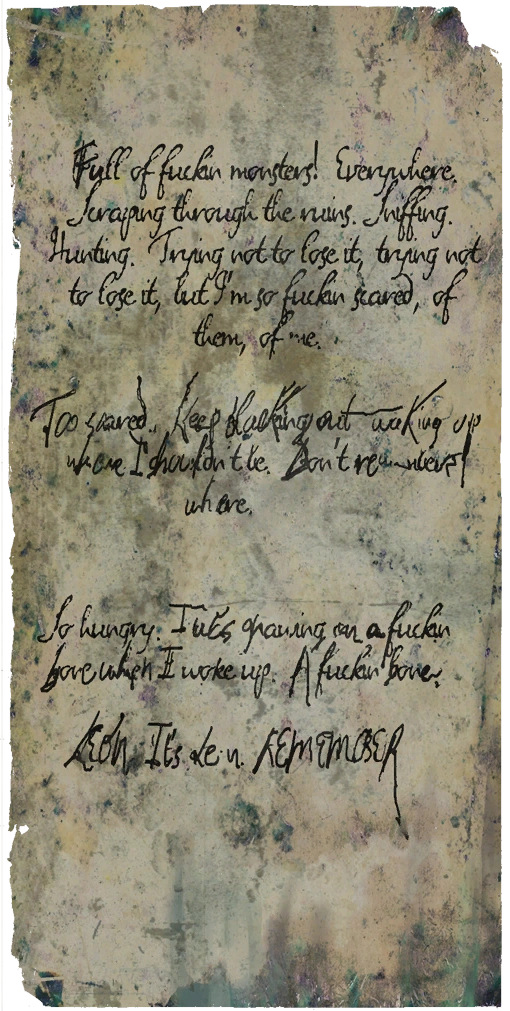 Full of fuckin monsters! Everywhere.
Scraping through the ruins. Sniffing.
Hunting. Trying not to lose it, trying not
to lose it, but I'm so fuckin scared, of
them, of me.
Too scared. Keep blacking out waking up
where I shouldn't be. Don't remember
where.
So hungry. I was gnawing on a fuckin
bone when I woke up. A fuckin bone.
LEON. It's Leon. REMEMBER